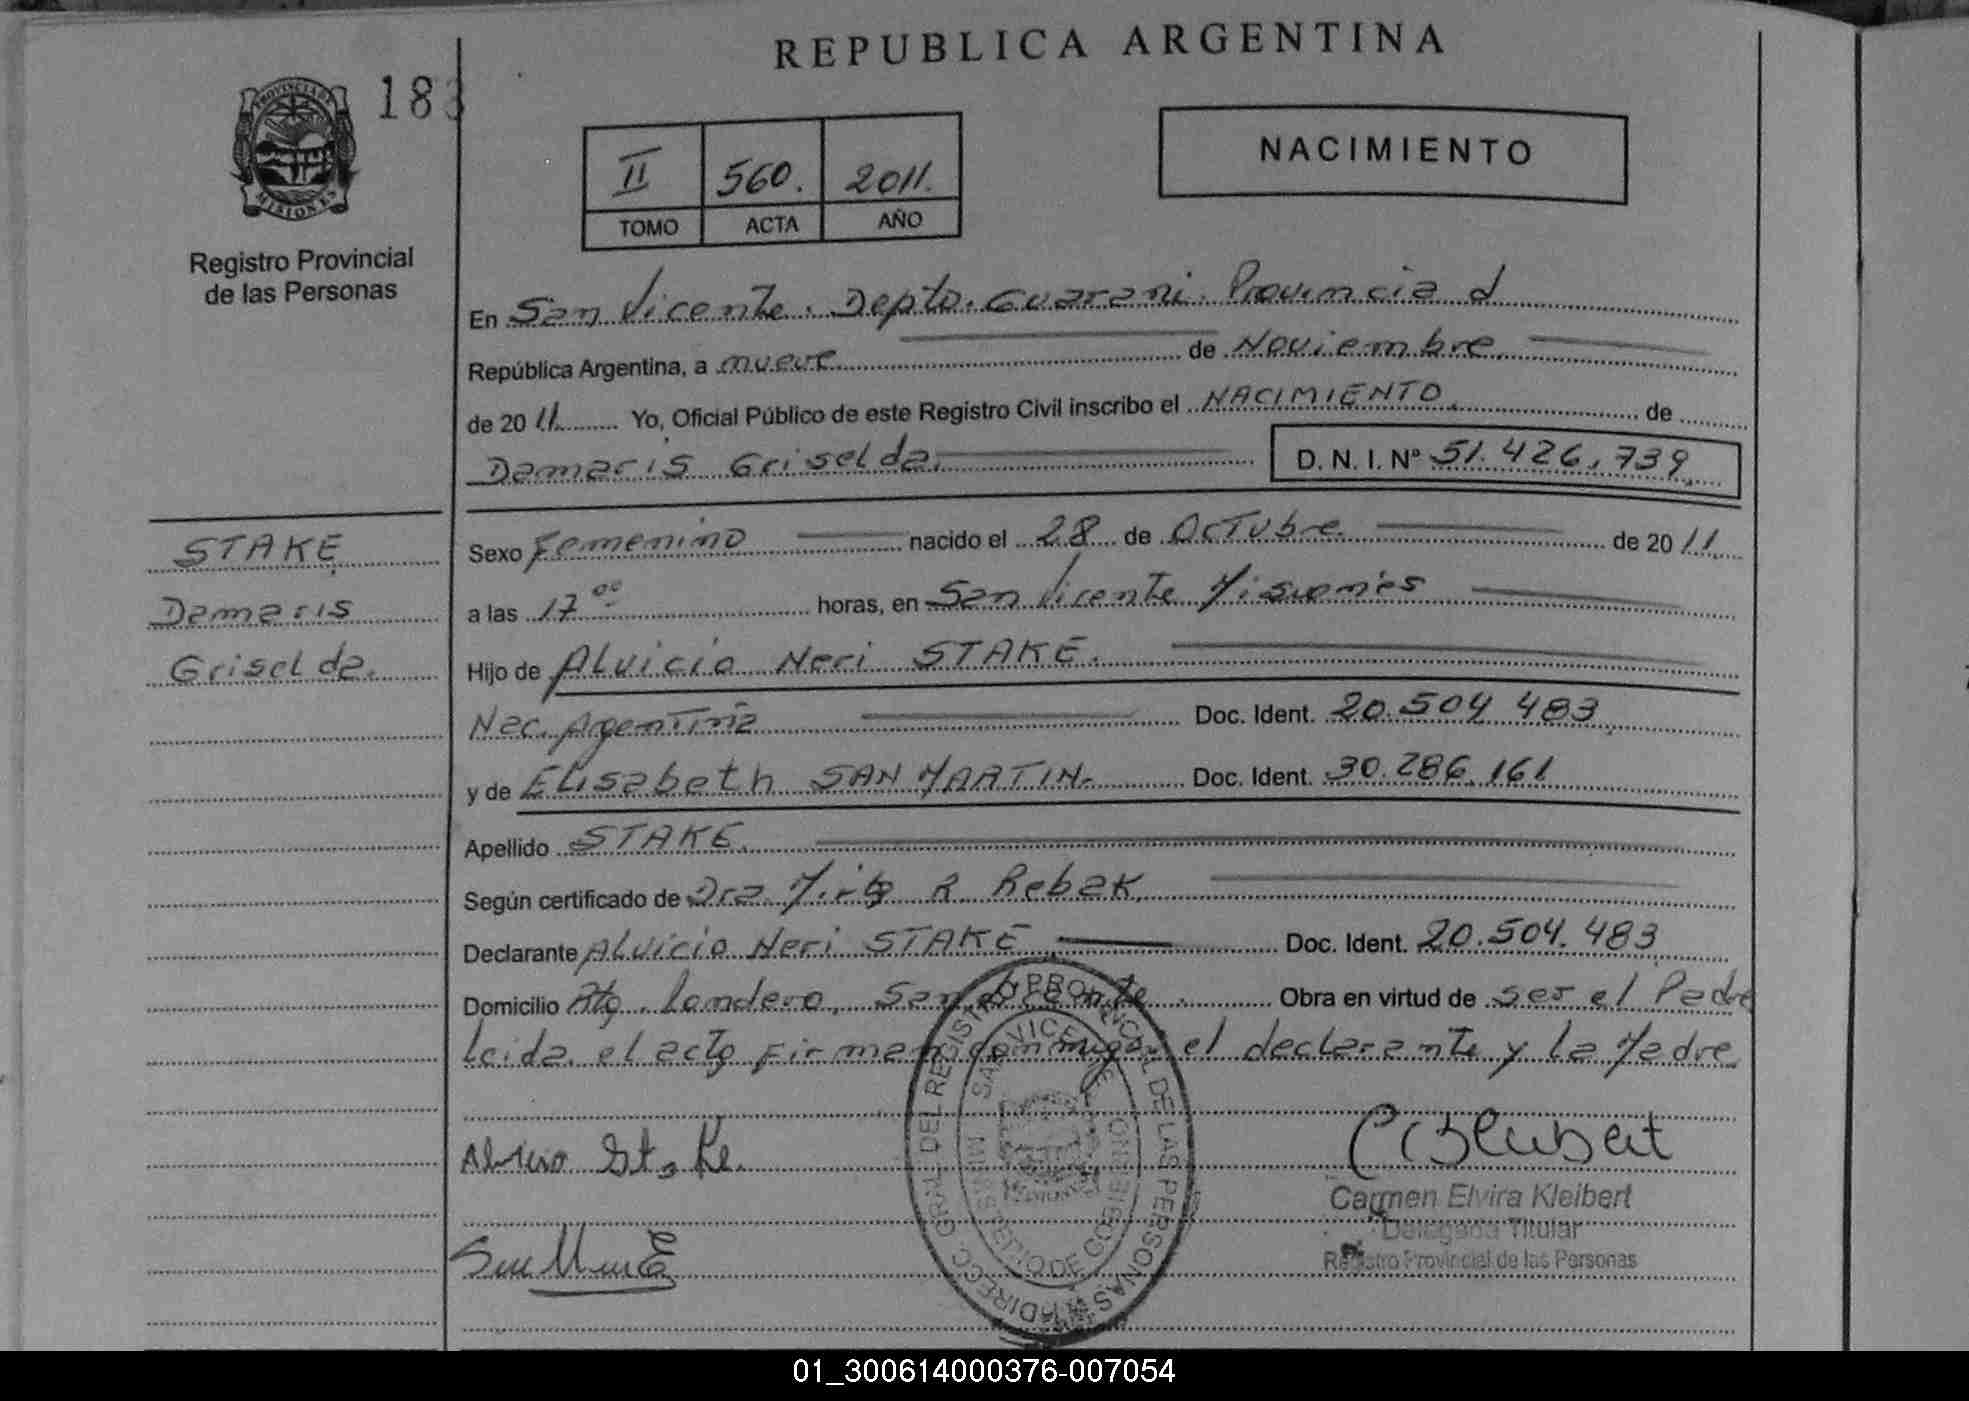 REPUBLICA ARGENTINA
183
PROVINCIA DE MISIONES
Registro Provincial
de las Personas
II 560. 2011.
TOMO ACTA AÑO
NACIMIENTO
En San Vicente. Depto. Guarani. Provincia d
República Argentina, a nueve de Noviembre.
de 2011 Yo, Oficial Público de este Registro Civil inscribo el NACIMIENTO. de
Damaris Griselda. D. N. I. Nº 51.426.739
STAKE
Damaris
Griselda.
Sexo Femenino nacido el 28 de Octubre. de 2011.
a las 17 oo horas, en San Vicente Misiones
Hijo de Alvicio Neri STAKE.
Nac. Argentina Doc. Ident. 20.504 483
y de Elisabeth SAN MARTIN. Doc. Ident. 30.286.161
Apellido STAKE.
Según certificado de Dra. Mirta R Rebak.
Declarante Alvicio Neri STAKE Doc. Ident. 20.504.483
Domicilio Landero, San Vicente. Obra en virtud de ser el Padre
leida el acta firman conmigo el declarante y la Madre
Alvicio Stake.
Carmen Elvira Kleibert
Delegada Titular
Registro Provincial de las Personas
DIRECC. GRAL. DEL REGISTRO PROVINCIAL DE LAS PERSONAS
SAN VICENTE
MINISTERIO DE GOBIERNO
01_300614000376-007054